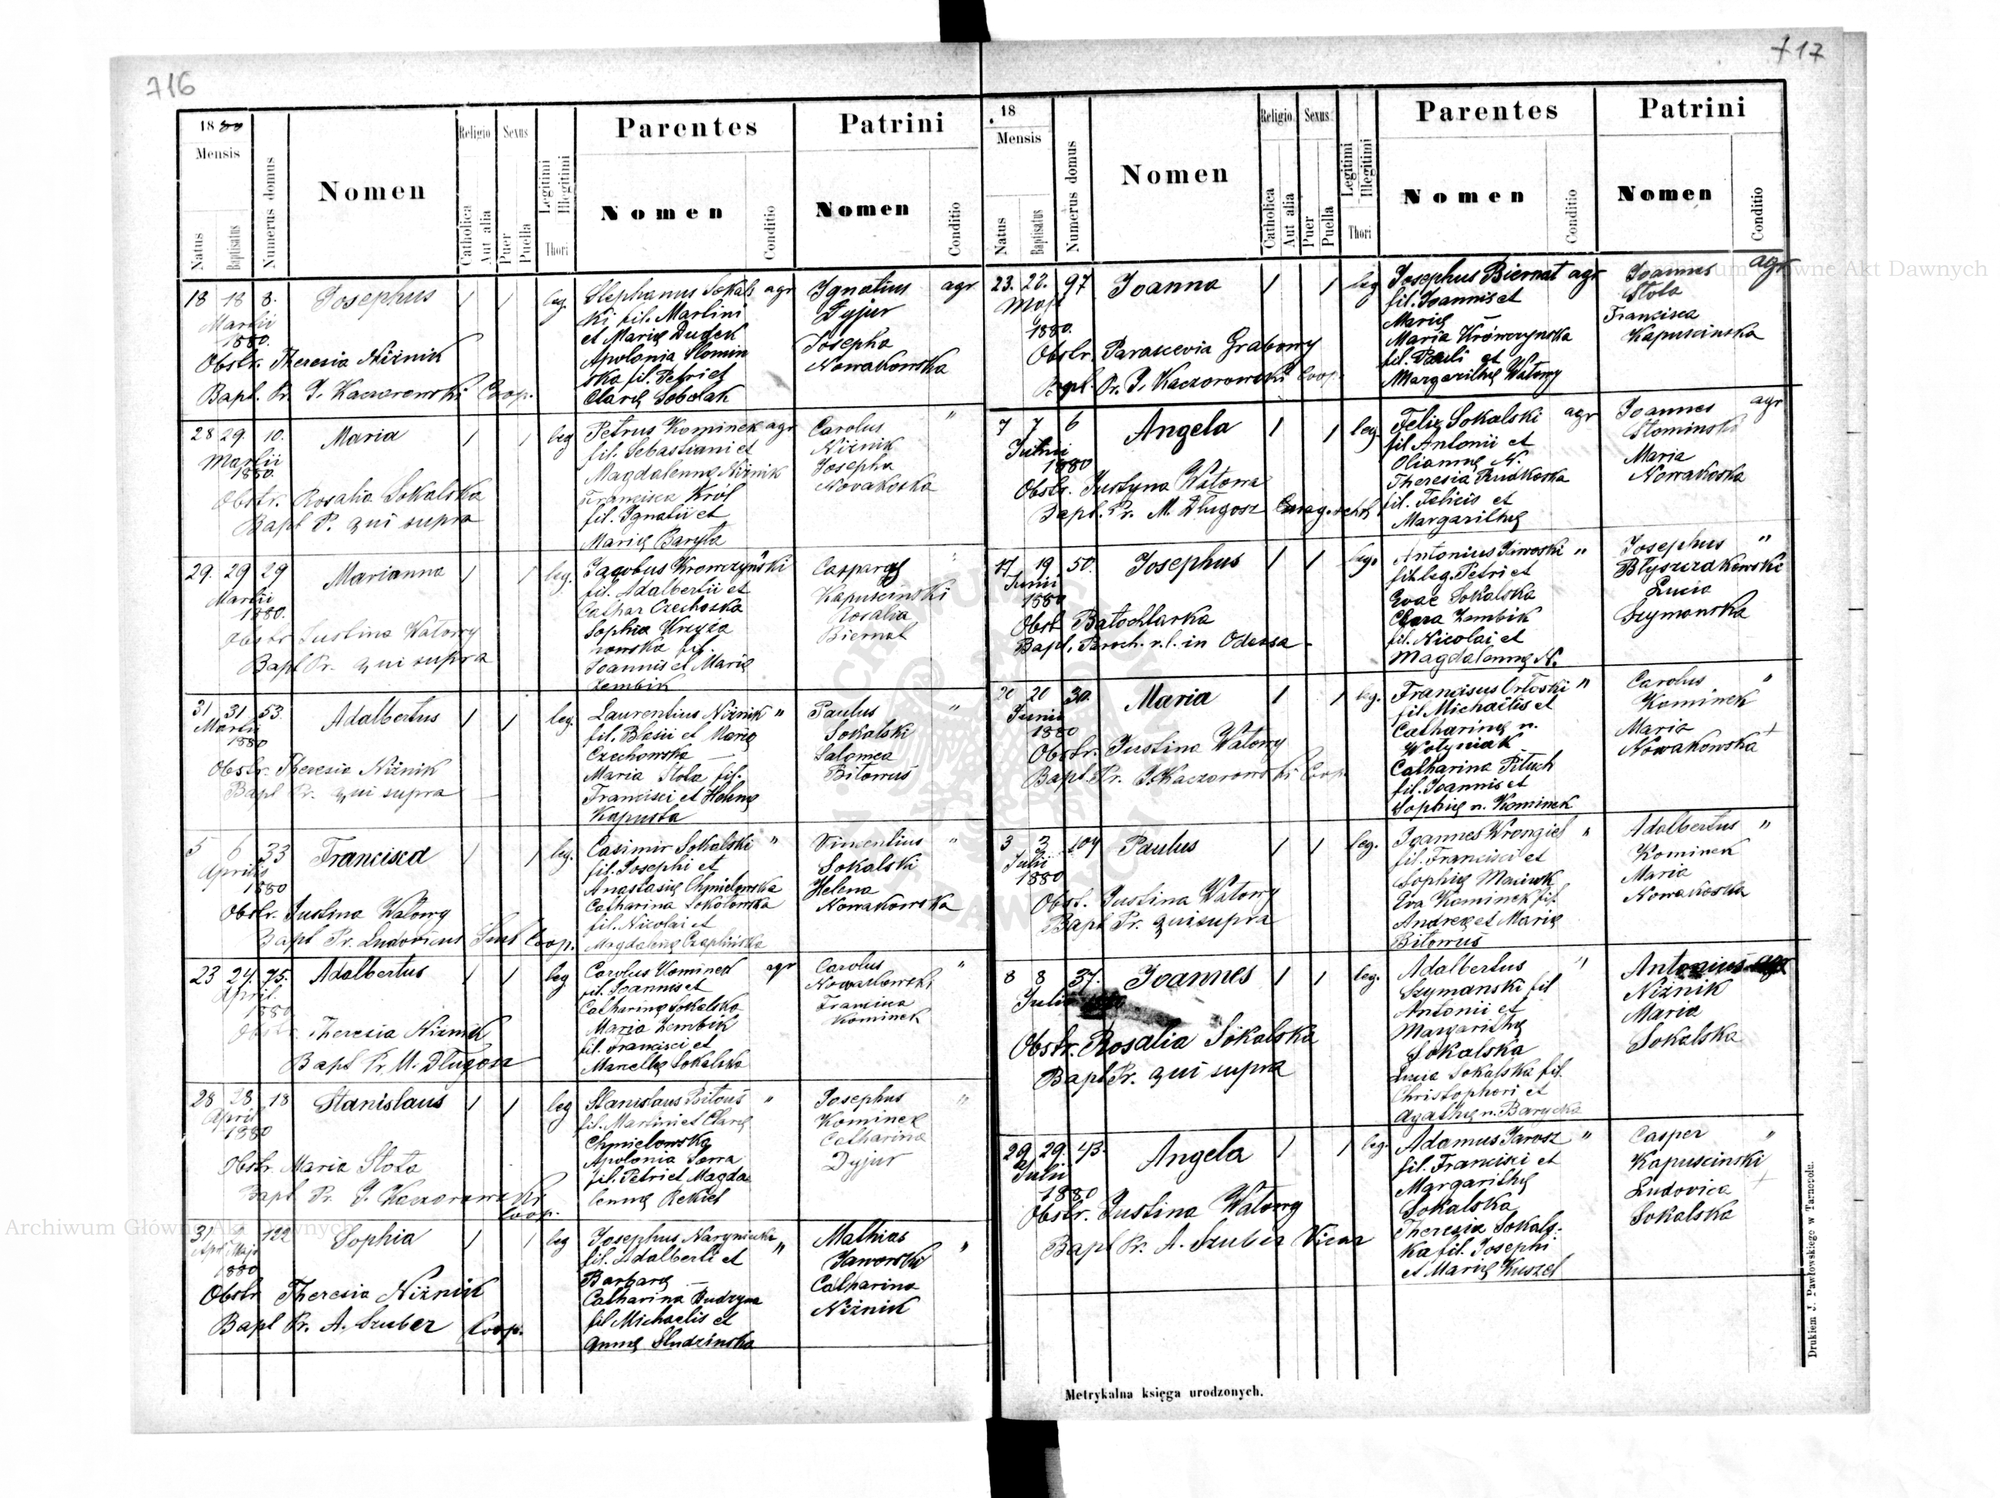 716
1880
Mensis
Natus
Baptisatus
Numerus domus
Nomen
Religio
Catholica
Aut alia
Sexus
Puer
Puella
Legitimi
Illegitimi
Thori
Parentes
Nomen
Conditio
Patrini
Nomen
Conditio
18 18 8. Josephus 1 1 leg.
Martii
1880.
Obstr. Theresia Niżnik
Bapt. Pr. J. Kaczorowski Coop.
Stephanus Sokals agr
ki fil. Martini
et Marię Dudek
Apolonia Słomin
ska fil. Petri et
Clarę Sobolak
Ignatius agr
Dyjur
Josepha
Nowakowska
28 29. 10. Maria 1 1 leg
Martii
1880.
Obstr. Rosalia Sokalska
Bapt P. qui supra
Petrus Kominek agr
fil. Sebastiani et
Magdalenę Niżnik
Francisca Król
fil. Ignatii et
Marię Baryła
Carolus "
Niżnik
Josepha
Novakoska
29. 29 29 Marianna 1 1 leg.
Martii
1880.
Obstr Justina Watowy
Bapt Pr. qui supra
Jagobus Krowczyński "
fil. Adalbertii et
Cathar Czechoska
Sophia
nowska fil.
Joannis et Marię
Zembik
Kapuscinski
Rosalia
Biernat
31 31 53. Adalbertus 1 1 leg.
Martii
1880
Obstr. Theresia Niżnik
Bapt Pr. qui supra
Laurentius Niżnik "
fil. Blasii et Marię
Czechowska —
Maria Stota fil.
Francisci et Helenę
Kapusta
Paulus "
Sokalski
Salomea
Bitowus
5 6 33 Francisca 1 1 leg.
Aprilis
1880
Obstr. Justina Watowy
Bapt Pr. Ludovicus Coop.
Casimir Sokalski "
fil. Josephi et
Anastasię Chmielowska
Catharina Sokolowska
fil. Nicolai et
Magdalenę
Vincentius "
Sokalski
Helena
Nowakowska
23 24. 75. Adalbertus 1 1 leg
April.
1880
Obstr. Theresia Niżnik
Bapt Pr M. Długosz
Carolus Kominek agr
fil. Joannis et
Catharinę Sokalska
Maria Zembik
fil. Francisci et
Marcellę Sokalska
Carolus "
Nowakowski
Kominek
28 28 18 Stanislaus 1 1 leg
April
1880
Obstr. Maria Stota
Bapt Pr. J. Kaczorowski
Coop.
Stanislaus Bitous "
fil. Martini et Clarę
Chmielowska
Apolonia
fil. Petri et Magda
lenę
Josephus "
Kominek
Catharina
Dyjur
31 2 122 Sophia 1 1 leg
Apr. Maji
1880
Obstr Theresia Niżnik
Bapt Pr. A. Szuber Coop.
Josephus
fil. Adalberti et "
Barbarę —
Catharina Budzyna
fil Michaelis et
Annę Studzinska
Mathias
Jaworski "
Catharina
Niżnik
717
18
Mensis
Natus
Baptisatus
Numerus domus
Nomen
Religio
Catholica
Aut alia
Sexus
Puer
Puella
Legitimi
Illegitimi
Thori
Parentes
Nomen
Conditio
Patrini
Nomen
Conditio
23. 23. 97 Joanna 1 1 leg
Maji
1880.
Obstr. Parascevia Grabowy
Bapt. Pr. J. Kaczorowski Coop.
Josephus Biernat agr
fil. Joannis et
Marię —
Maria Krowczynska
fil. Pauli et
Margarithę Watowy
Joannes agr
Stota
Francisca
Kapuscinska
7 7 6 Angela 1 1 leg.
Junii
1880
Obstr. Justyna Watowa
Bapt. Pr. M. Długosz
Felix Sokalski agr
fil. Antonii et
Olianny N.
Theresia Rudkowska
fil. Felicis et
Margarithę
Joannes agr
Słominski
Maria
Nowakoska
17 19 50. Josephus 1 1 leg.
Junii
1880
Obst Batochlarka
Bapt. Paroch. r.l. in Odessa
Antonius "
fil. leg. Petri et
Evae Sokalska
Clara Zembik
fil. Nicolai et
Magdalennę N.
Josephus "
Błyszczakowski
Lucia
Szymanska
20 20 30. Maria 1 1 leg.
Junii
1880
Obstr. Justina Watowy
Bapt Pr. J. Kaczorowski Coop.
Franciscus Orłoski "
fil Michaelis et
Catharinę n.
Wołyniak
Catharina Pituch
fil. Joannis et
Sophię n. Kominek
Carolus "
Kominek
Maria
Nowakowska
3 3 104 Paulus 1 1 leg.
Julii
1880
Obst. Justina Watowy
Bapt Pr. qui supra
Joannes Wrongiel "
fil. Francisci et
Sophię
Eva Kominek fil.
Andreę et Marię
Bitowus
Adalbertus "
Kominek
Maria
Nowakoska
8 8 37. Joannes 1 1 leg.
Julii
Obstr. Rosalia Sokalska
Bapt Pr. qui supra
Adalbertus "
Szymanski fil
Antonii et
Margarithę
Sokalska
Lucia Sokalska fil.
Christophori et
Agathę n. Barycka
Antonius
Niżnik
Maria
Sokalska
29. 29. 43. Angela 1 1 leg.
Julii
1880
Obstr. Justina Watowy
Bapt Pr. A. Szuber Vicar
Adamus Jarosz "
fil. Francisci et
Margarithę
Sokalska
Theresia Sokals-
ka fil. Josephi
et Marię Kuszel
Casper "
Kapuscinski
Ludovica
Sokalska
Metrykalna księga urodzonych.
Drukiem J. Pawłowskiego w Tarnopolu.
Archiwum Główne Akt Dawnych